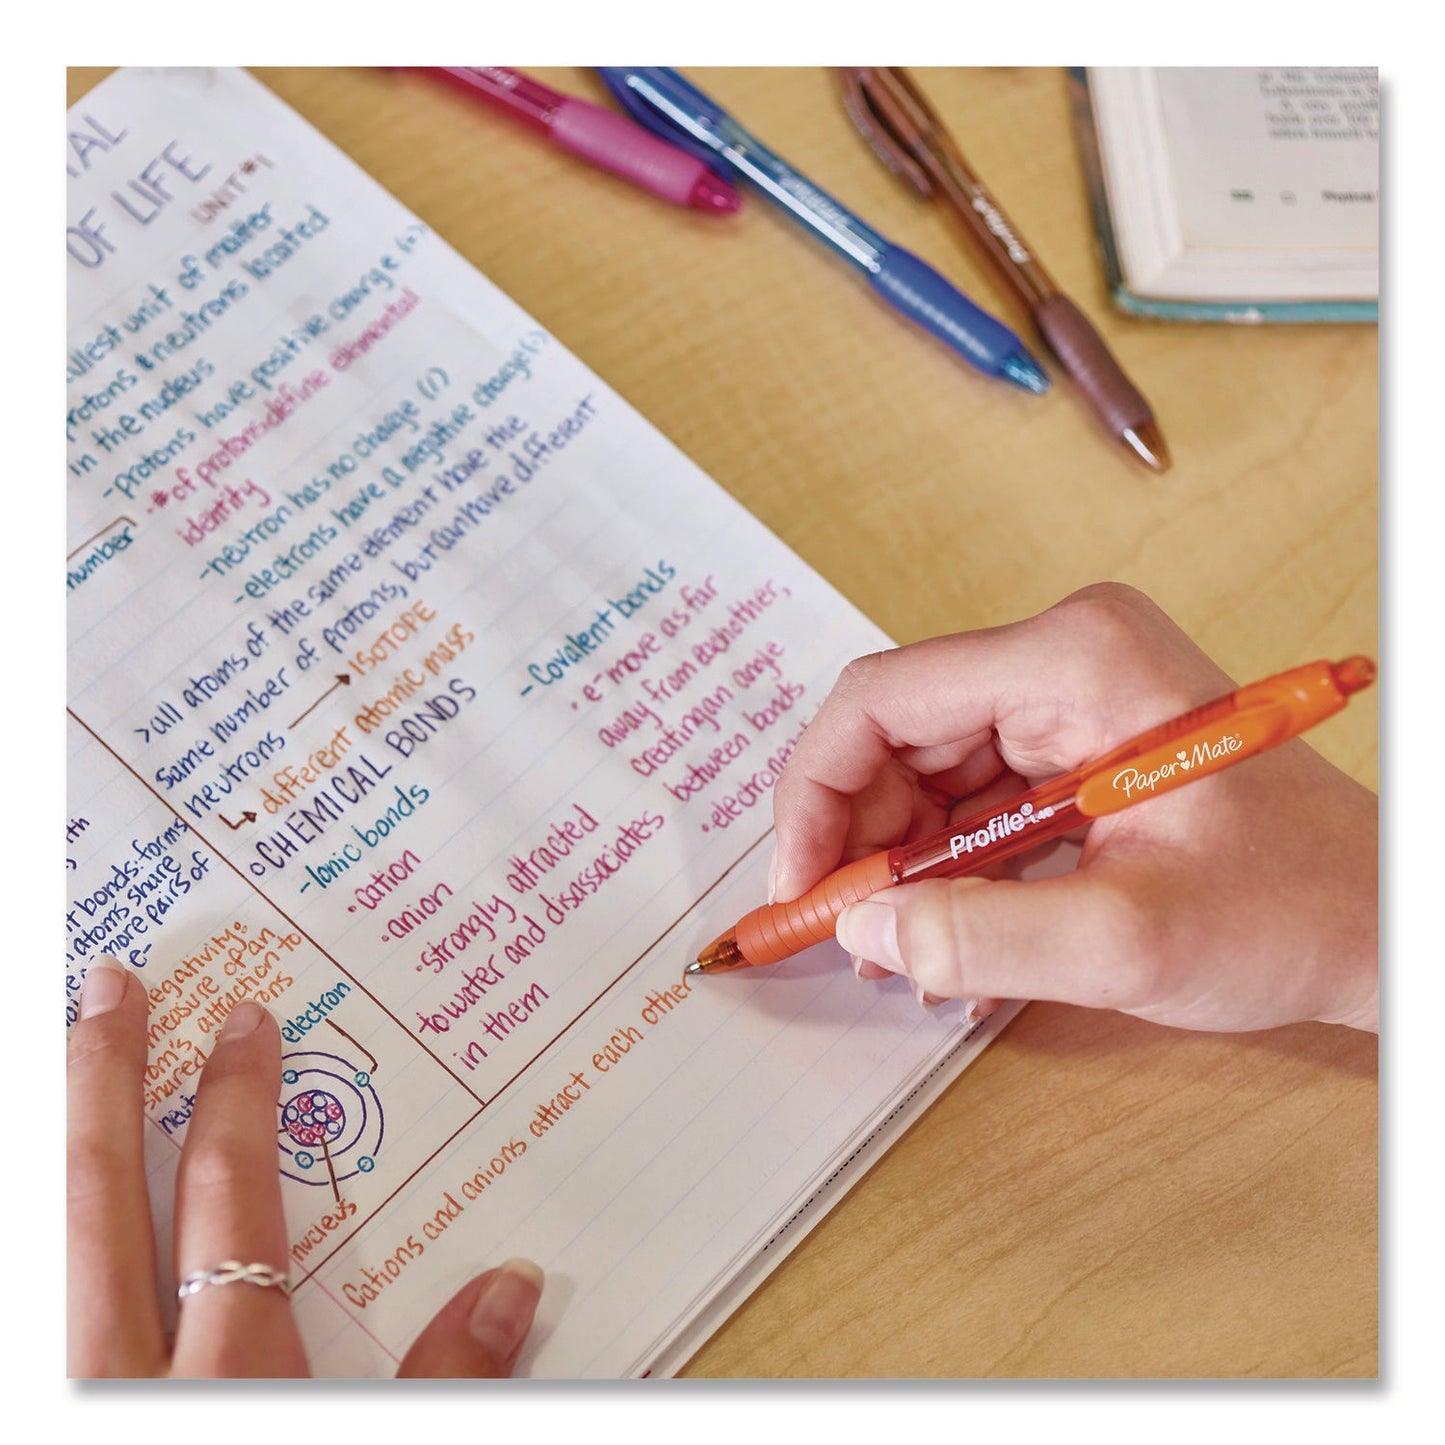 TAL
OF LIFE
UNIT #1
llest unit of matter
protons & neutrons located
in the nucleus
-protons have positive charge (+)
•# of protons define elemental
identity
-neutron has no charge ( )
-electrons have a negative charge (-)
>all atoms of the same element have the
same number of protons, but can have different
neutrons → ISOTOPE
different atomic mass
number
CHEMICAL BONDS
-Ionic bonds
•cation
•anion
•strongly attracted
to water and disassociates
in them
-Covalent bonds
•e-move as far
away from eachother,
creating an angle
between bonds
•electronega
th
t bonds: forms
atoms share
more pairs of
e-
negativity:
measure of an
tom's attraction to
shared
electron
neut
nucleus
Cations and anions attract each other
Paper Mate®
Profile® 1.4B
Physical